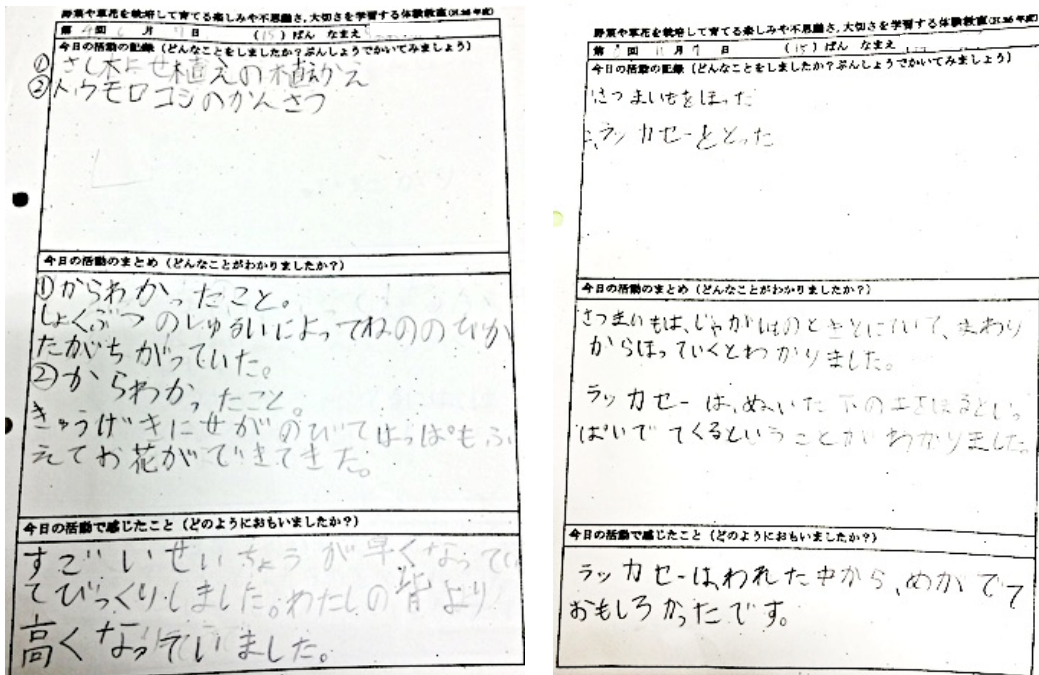 野菜や草花を栽培して育てる楽しみや不思議さ,大切さを学習する体験教室(H.26年度)
第 4回 6月 7日 (15)ばん なまえ
今日の活動の記録(どんなことをしましたか?ぶんしょうでかいてみましょう)
① さし木による植えの植えかえ
② トウモロコシのかんさつ
今日の活動のまとめ(どんなことがわかりましたか?)
①からわかったこと。
しょくぶつのしゅるいによってねののびか
たがちがっていた。
②からわかったこと。
きゅうげきにせがのびてはっぱもふ
えてお花ができてきた。
今日の活動で感じたこと(どのようにおもいましたか?)
すごいせいちょうが早くなってい
てびっくりしました。わたしの背より
高くなっていました。
野菜や草花を栽培して育てる楽しみや不思議さ,大切さを学習する体験教室(H.26年度)
第 回 11月 日 (15)ばん なまえ
今日の活動の記録(どんなことをしましたか?ぶんしょうでかいてみましょう)
さつまいもをほった
ラッカセーをとった
今日の活動のまとめ(どんなことがわかりましたか?)
さつまいもは、じゃがいものときとにていて、まわり
からほっていくとわかりました。
ラッカセーは、ぬいた下の土をほるといっ
ぱいでてくるということがわかりました。
今日の活動で感じたこと(どのようにおもいましたか?)
ラッカセーは、われた中から、めがでて
おもしろかったです。